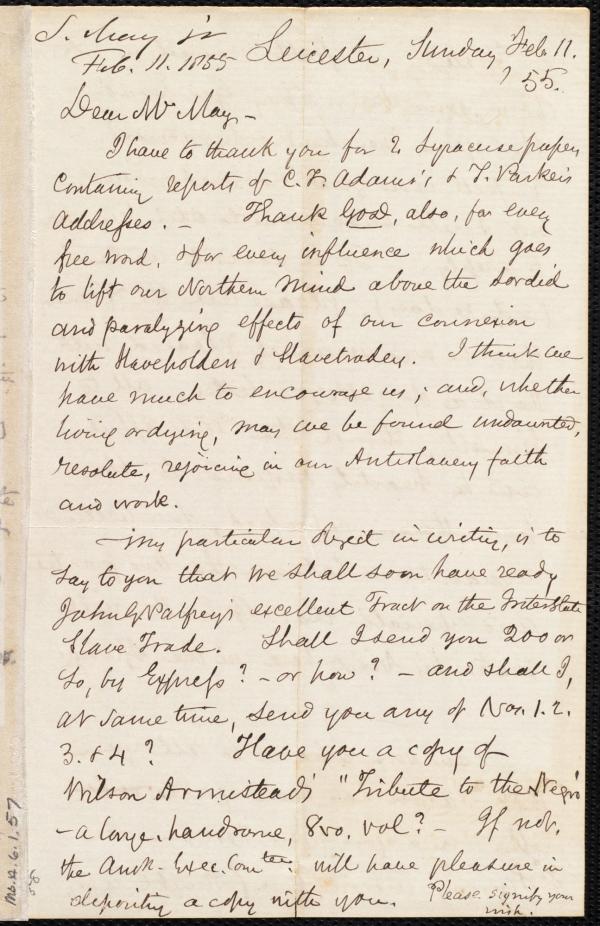 S. May Jr
Feb. 11. 1855
Leicester, Sunday Feb. 11.
/55.
Dear Mr May,-
I have to thank you for 2 Syracuse papers
containing reports of C. F. Adams's & T. Parker's
Addresses. - Thank God, also, for every
free word, & for every influence which goes
to lift our Northern mind above the sordid
and paralyzing effects of our connexion
with Slaveholders & Slavetraders. I think we
have much to encourage us; and, whether
living or dying, may we be found undaunted,
resolute, rejoicing in our Antislavery faith
and work.
- My particular object in writing, is to
say to you that we shall soon have ready
John G. Palfrey's excellent Tract on the InterState
Slave Trade. Shall I send you 200 or
so, by Express? - or how? - and shall I,
at same time, send you any of Nos. 1. 2.
3. & 4? Have you a copy of
Wilson Armistead's "Tribute to the Negro"
- a large, handsome, 8vo. vol? - If not,
the Am. Exec. Comtee. will have pleasure in
depositing a copy with you. Please signify your
wish.
Ms.A.6.1.57